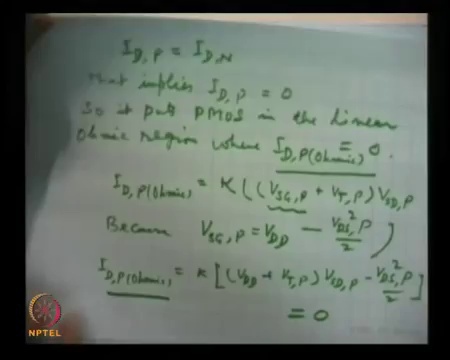 I_D,P = I_D,N
that implies I_D,P = 0
So it puts PMOS in the linear
Ohmic region where I_D,P(Ohmic) = 0.
I_D,P(Ohmic) = K((V_SG,P + V_T,P) V_SD,P
Because V_SG,P = V_DD - V_DS,P^2/2)
I_D,P(Ohmic) = K[(V_DD + V_T,P) V_SD,P - V_DS,P^2/2]
= 0
NPTEL